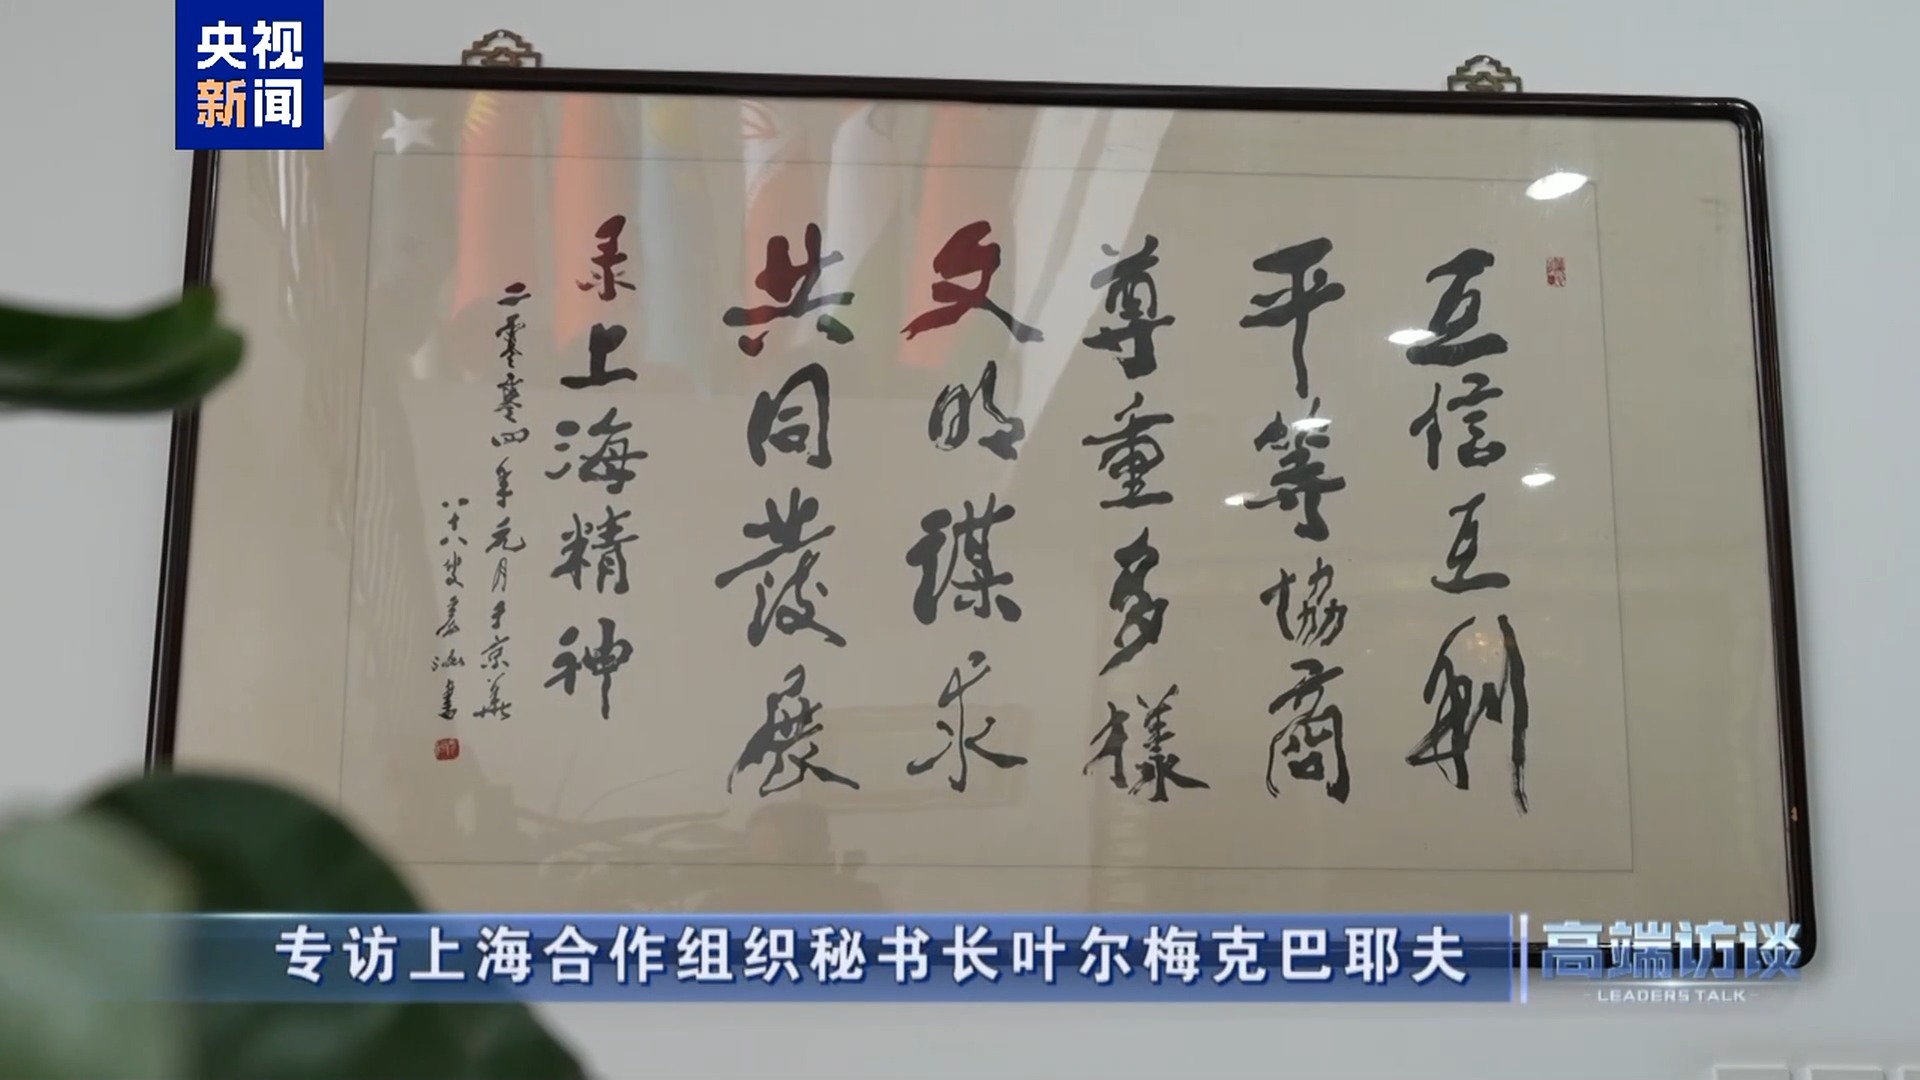 央视
新闻
互信互利
平等协商
尊重多樣
文明謀求
共同發展
录上海精神
二零零四年元月于京華
八十八叟
书
专访上海合作组织秘书长叶尔梅克巴耶夫
高端访谈
LEADERS TALK